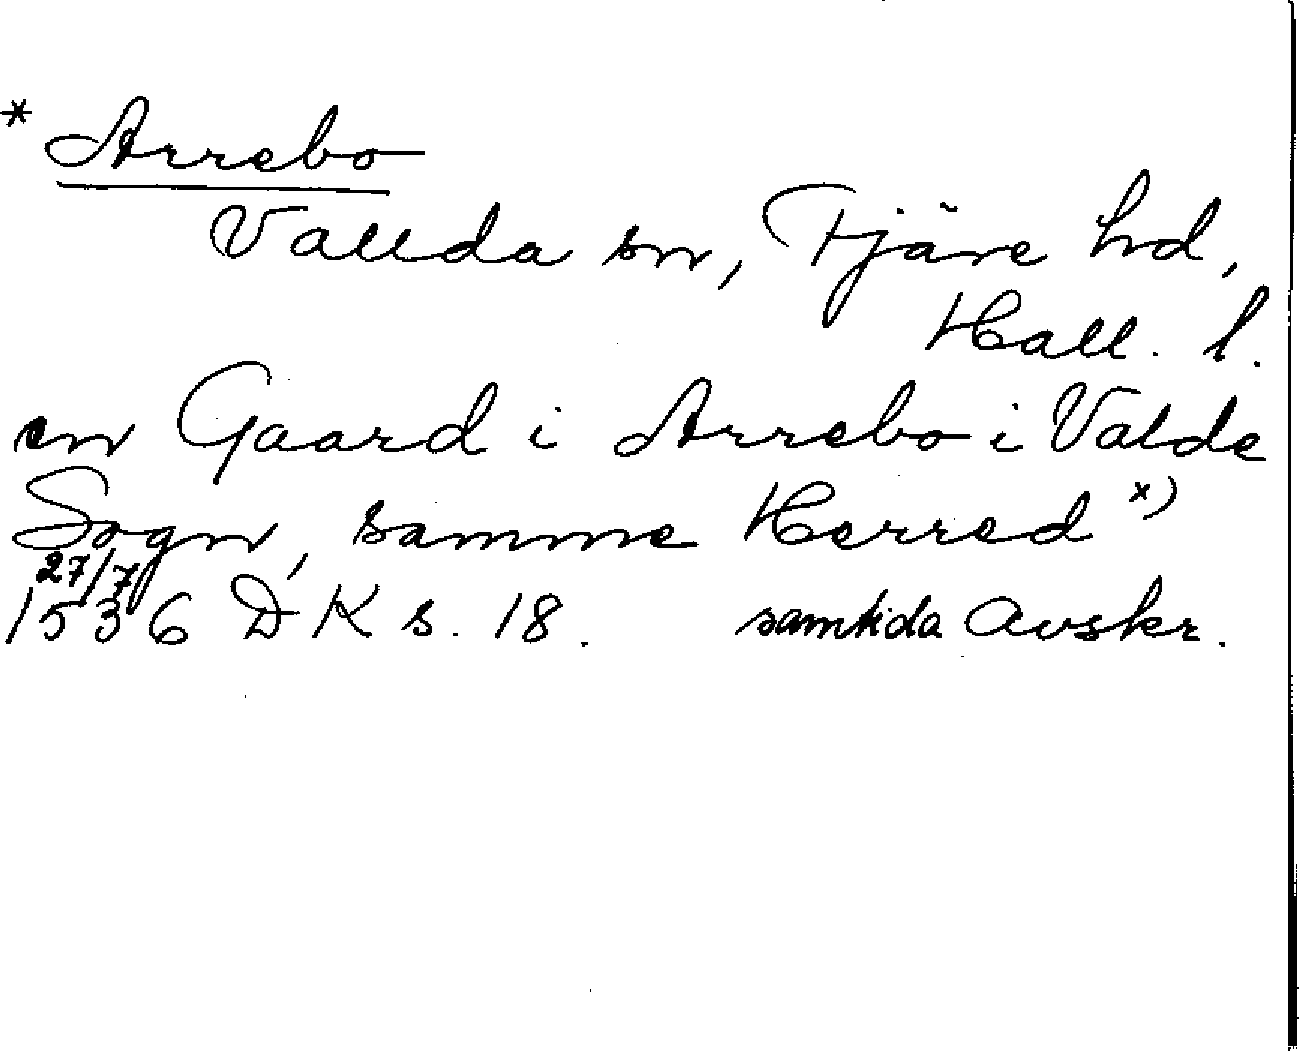 * Arrebo
Vallda sn, Fjäre hd,
Hall. l.
en Gaard i Arrebo i Valde
Sogn, samme Herred x)
27/7
1536 DK s. 18. samtida Avskr.